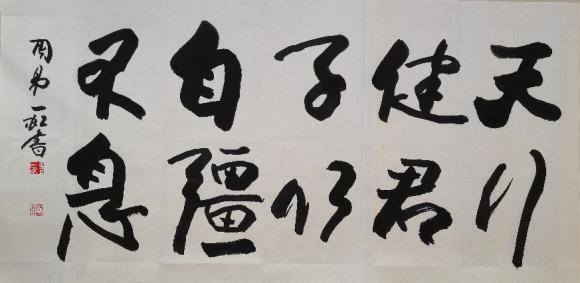 天行
健君
子以
自彊
不息
周易 一 書